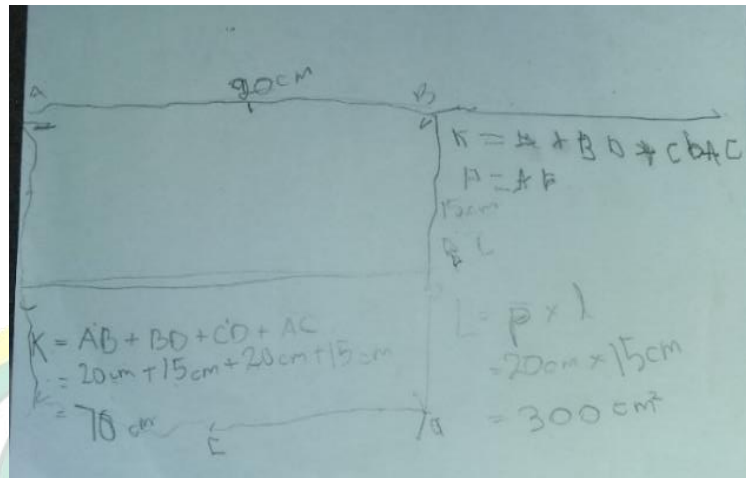 A 20 cm B
K = A + BD + CD AC
P = A
15 cm
L
K = AB + BD + CD + AC
= 20 cm + 15 cm + 20 cm + 15 cm
= 70 cm
L = p x l
= 20 cm x 15 cm
= 300 cm²
C